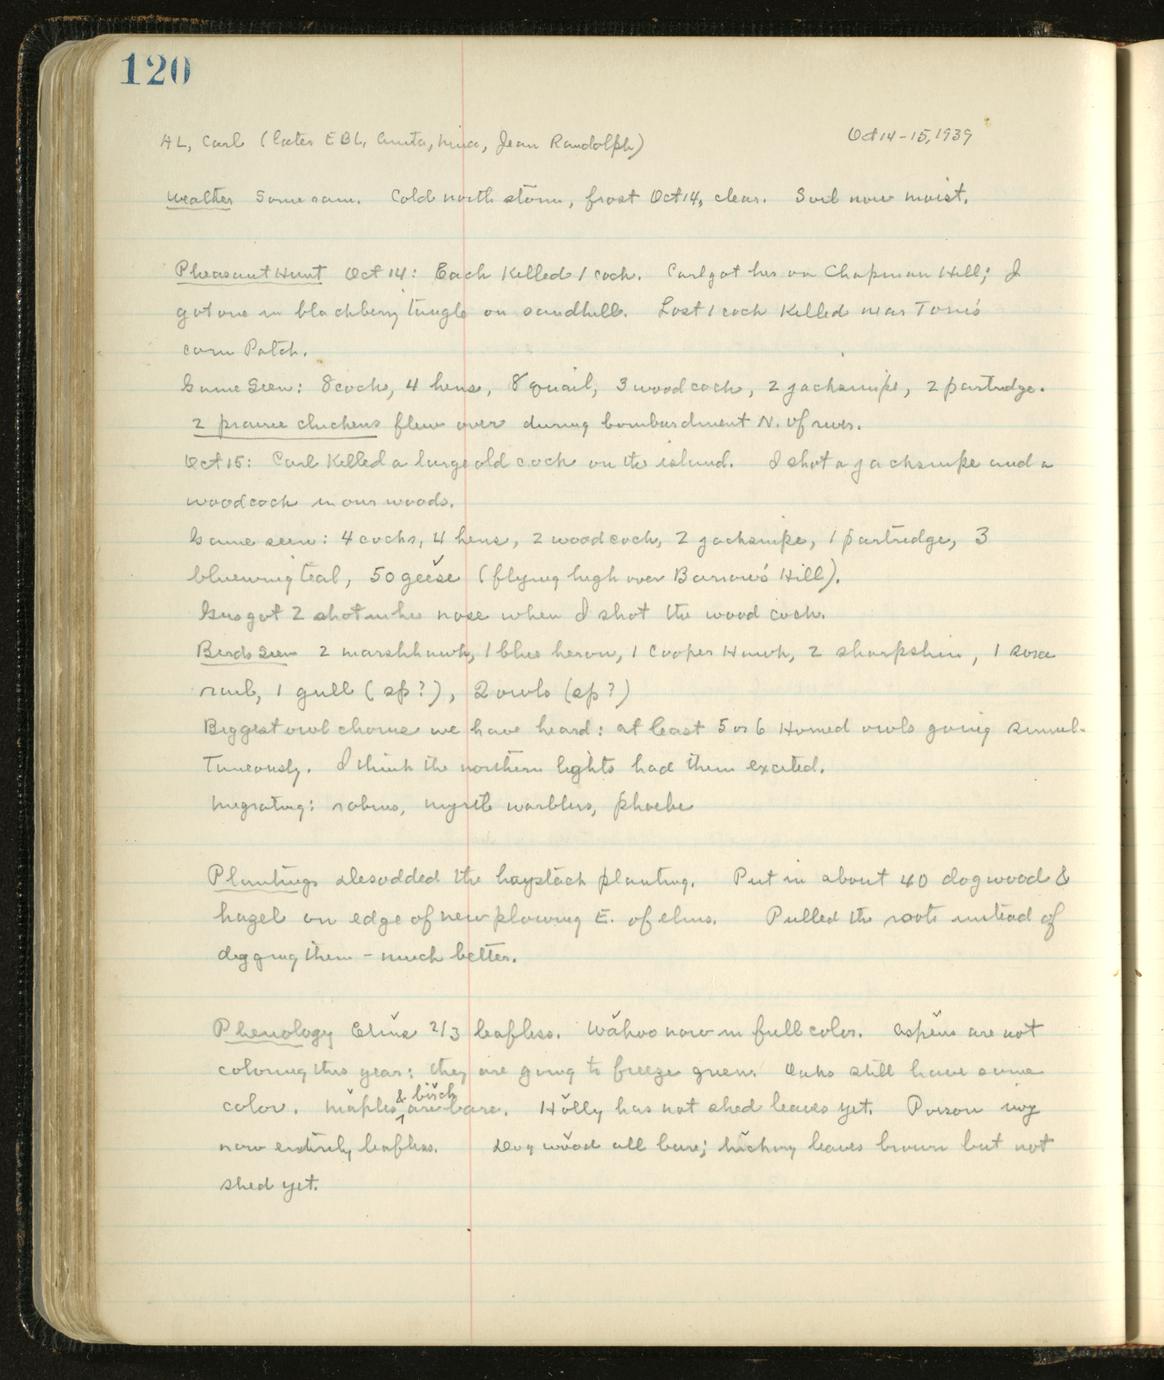 120
AL, Carl (later EBL, Anita, Nina, Jean Randolph) Oct 14-15, 1939
Weather Some rain. Cold north storm, frost Oct 14, clear. Soil now moist.
Pheasant Hunt Oct 14: Each killed 1 cock. Carl got his on Chapman Hill; I
got one in blackberry tangle on sandhill. Lost 1 cock killed near Tom's
corn Patch.
Game Seen: 8 cocks, 4 hens, 8 quail, 3 woodcock, 2 jacksnipe, 2 partridge.
2 prairie chickens flew over during bombardment N. of river.
Oct 15: Carl killed a large old cock on the island. I shot a jacksnipe and a
woodcock in our woods.
Game seen: 4 cocks, 4 hens, 2 woodcock, 2 jacksnipe, 1 partridge, 3
bluewing teal, 50 geese (flying high over Barrows' Hill).
Gus got 2 shot in his nose when I shot the woodcock.
Birds Seen 2 marshhawk, 1 blue heron, 1 Cooper Hawk, 2 sharpshin, 1 sora
rail, 1 gull (sp?), 2 owls (sp?)
Biggest owl chorus we have heard: at least 5 or 6 Horned owls going simul-
taneously. I think the northern lights had them excited.
Migrating: robins, myrtle warblers, phoebe
Plantings desodded the haystack planting. Put in about 40 dogwood &
hazel on edge of new plowing E. of elms. Pulled the roots instead of
digging them - much better.
Phenology Elms 2/3 leafless. Wahoo now in full color. Aspens are not
coloring this year; they are going to freeze green. Oaks still have some
color. Maples & birch are bare. Holly has not shed leaves yet. Poison ivy
now entirely leafless. Dogwood all bare; hickory leaves brown but not
shed yet.